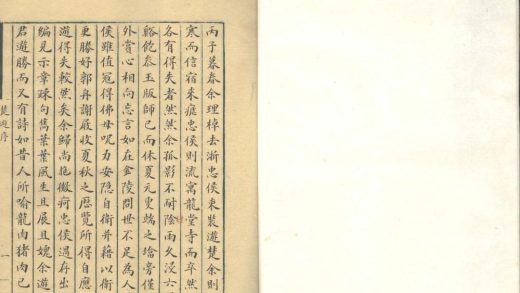 丙子暮春余理棹去漸忠侯束裝遊楚余則
寒而信宿來瘧忠侯則流寓龍堂寺而卒然
各有得失者然然余孤影不耐陰雨久浸六
谿飽恭玉版師已而休夏元叟端之㙮旁僅
外賞心相向忘言如在金陵問世不足為人
侯雖值寇得佛母呪力安隱自衛并藉以衛
更勝好郭舟謝嚴收夏秋之歷覽所得自應
遊得失較然矣余歸尚抱微痾忠侯過存出
編見示章踈句雋葉葉風生且展且媿余遊
君遊勝而又有詩如昔人所喻龍肉豬肉已
楚遊序
一